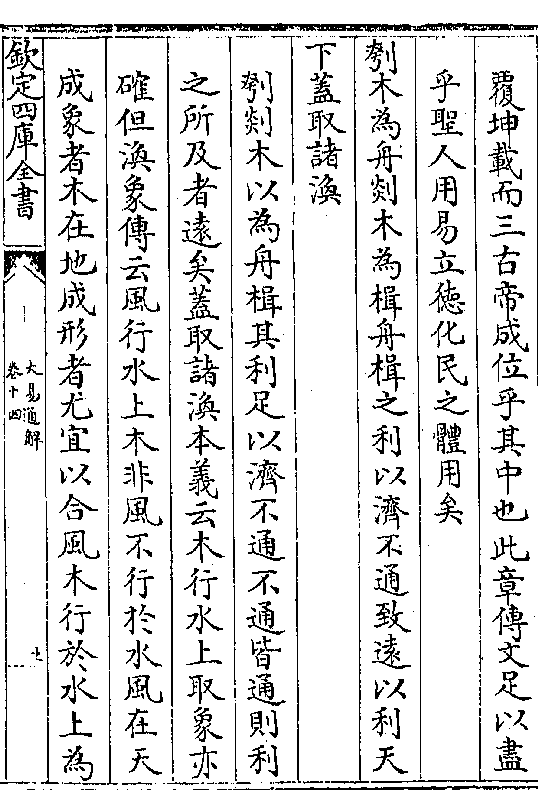 覆坤載而三古帝成位乎其中也此章傳文足以盡
乎聖人用易立徳化民之體用矣
刳木為舟剡木為楫舟楫之利以濟不通致遠以利天
下蓋取諸渙
刳剡木以為舟楫其利足以濟不通不通皆通則利
之所及者遠矣蓋取諸渙本義云木行水上取象亦
確但渙象傳云風行水上木非風不行於水風在天
成象者木在地成形者尤宜以合風木行於水上為
欽定四庫全書
大易通解
卷十四